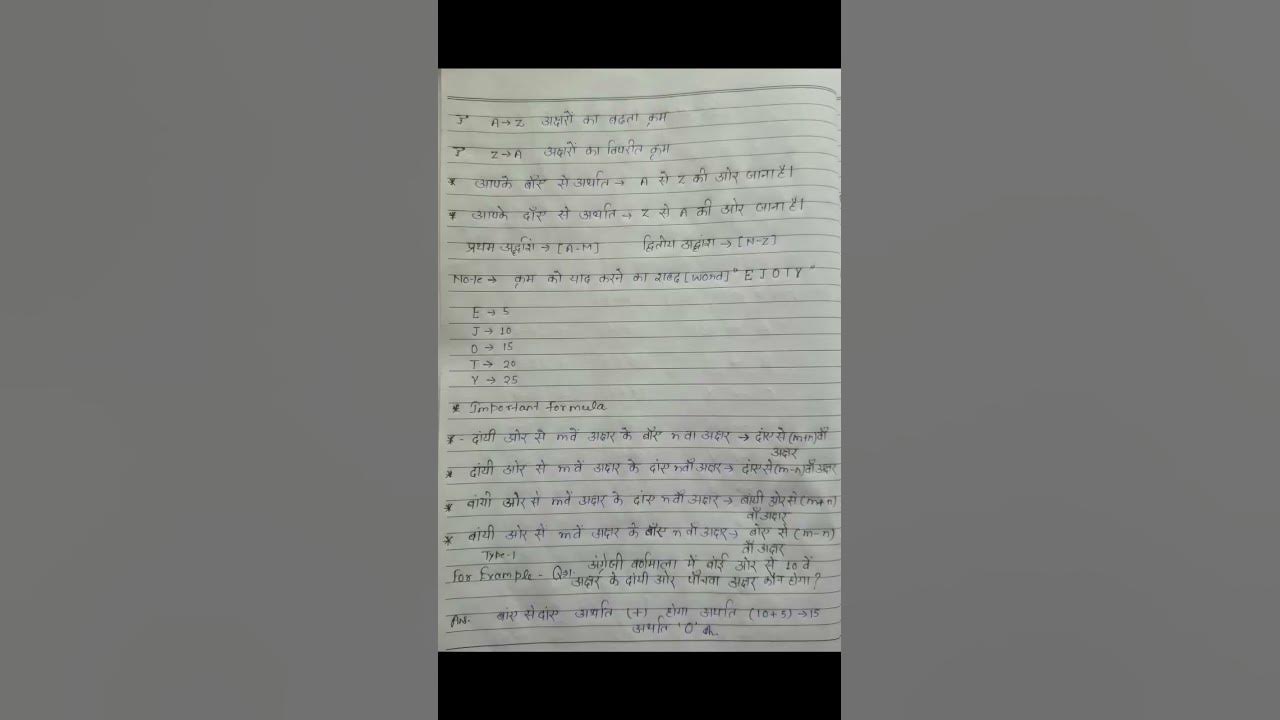 A→Z अक्षरों का बढता क्रम
Z→A अक्षरों का विपरीत क्रम
* आपके बाँए से अर्थात → A से Z की ओर जाना है।
* आपके दाँए से अर्थात → Z से A की ओर जाना है।
प्रथम अर्द्धांश → [A-M] द्वितीय अर्द्धांश → [N-Z]
Note → क्रम को याद करने का शब्द [word] "E J O T Y"
E → 5
J → 10
O → 15
T → 20
Y → 25
* Important formula
* - दांयी ओर से mवें अक्षर के बाँए nवा अक्षर → दांए से (m+n)वाँ
अक्षर
* दांयी ओर से mवें अक्षर के दांए nवाँ अक्षर → दांए से (m-n)वाँ अक्षर
* बांयी ओर से mवें अक्षर के दांए nवाँ अक्षर → बांयी ओर से (m+n)
वाँ अक्षर
* बांयी ओर से mवें अक्षर के बाँए nवाँ अक्षर → बांए से (m-n)
वाँ अक्षर
Type-1
For Example - Q1. अंग्रेजी वर्णमाला में बांई ओर से 10 वें
अक्षर के दांयी ओर पाँचवा अक्षर कौन होगा?
Ans. बांए से दांए अर्थात (+) होगा अर्थात (10+5) → 15
अर्थात 'O'